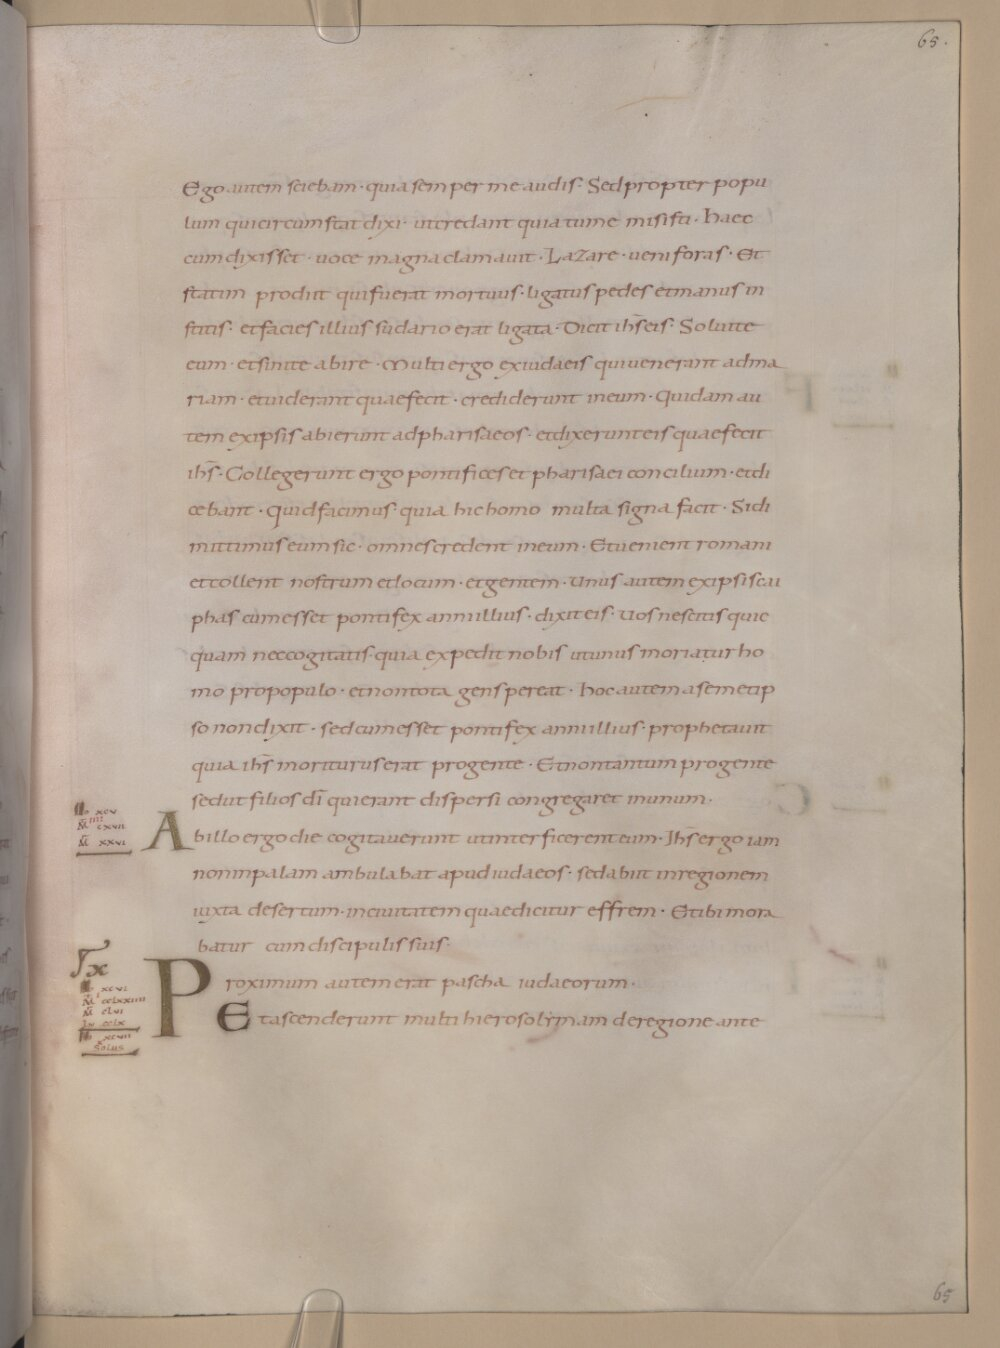 65.
Ego autem sciebam · quia semper me audis · Sed propter popu
lum qui circumstat dixi · ut credant quia tu me misisti · Haec
cum dixisset · uoce magna clamauit · Lazare · ueni foras · Et
statim prodiit qui fuerat mortuus · ligatus pedes et manus in
stitis · et facies illius sudario erat ligata · Dicit ihs̄ eis · Soluite
eum · et sinite abire · Multi ergo ex iudaeis qui uenerant ad ma
riam · et uiderant quae fecit · crediderunt in eum · Quidam au
tem ex ipsis abierunt ad pharisaeos · et dixerunt eis quae fecit
ihs̄ · Collegerunt ergo pontifices et pharisaei concilium · et di
cebant · Quid facimus · quia hic homo multa signa facit · Si di
mittimus eum sic · omnes credent in eum · Et uenient romani
et tollent nostrum et locum · et gentem · Unus autem ex ipsis cai
phas cum esset pontifex anni illius · dixit eis · Uos nescitis quic
quam nec cogitatis · quia expedit nobis ut unus moriatur ho
mo pro populo · et non tota gens pereat · Hoc autem a semetip
so non dixit · sed cum esset pontifex anni illius · prophetauit
quia ihs̄ moriturus erat pro gente · Et non tantum pro gente
sed ut filios dī qui erant dispersi congregaret in unum ·
xcv
M̄ cxvii
M̄ xxvi
Ab illo ergo die cogitauerunt ut interficerent eum · Ihs̄ ergo iam
non in palam ambulabat apud iudaeos · sed abiit in regionem
iuxta desertum · in ciuitatem quae dicitur effrem · Et ibi mora
batur cum discipulis suis ·
xcvi
M̄ cclxxiiii
M̄ clvi
Lu cclx
xcvii
solus
Proximum autem erat pascha iudaeorum ·
Et ascenderunt multi hierosolymam de regione ante
65